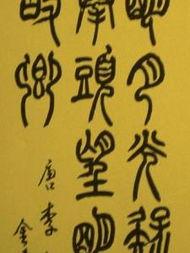 明月光疑
舉頭望明
故鄉
唐李
金